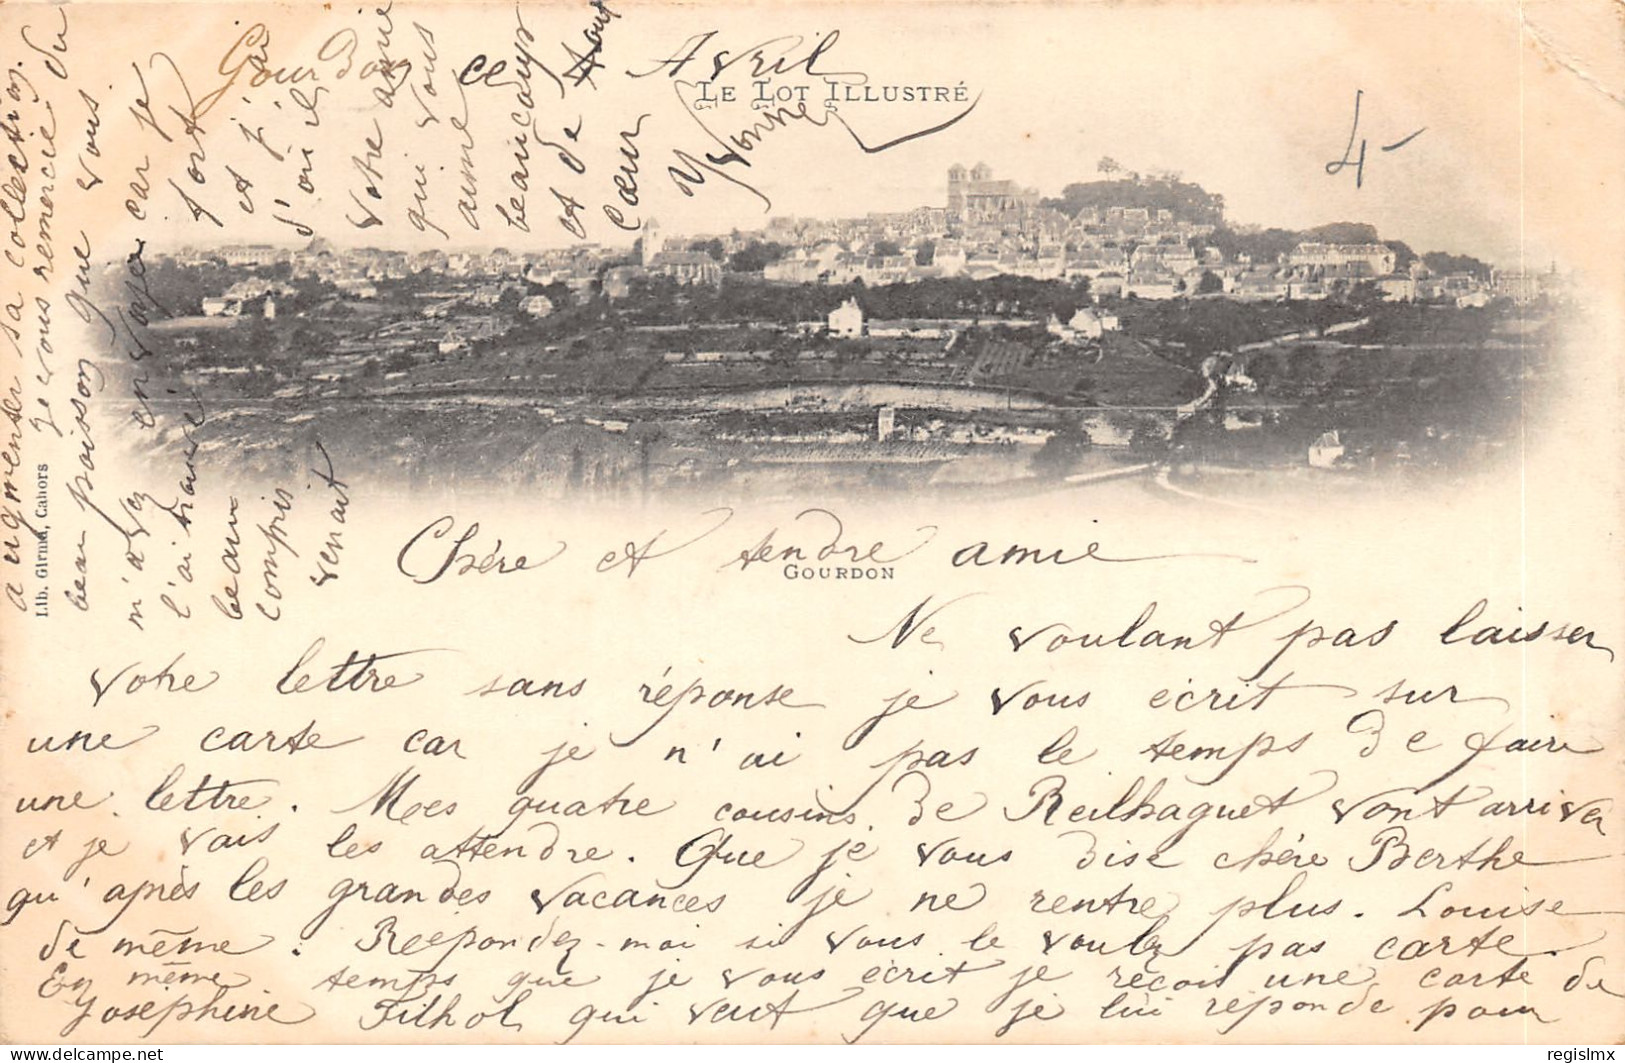 Gourdon ce Avril
LE LOT ILLUSTRÉ
4-
Chère et tendre amie
GOURDON
Ne voulant pas laisser
votre lettre sans réponse je vous écrit sur
une carte car je n'ai pas le temps de faire
une lettre. Mes quatre cousins de Reilhaguet vont arriver
et je vais les attendre. Que je vous dise chère Berthe
qu'après les grandes vacances je ne rentre plus. Louise
de même. Reepondez-moi si vous le voulez pas carte.
En même temps que je vous écrit je reçois une carte de
Josephine Filhol qui veut que je lui réponde pour
augmenter sa collection.
je vous remercie du
beau poisson que vous
m'avez envoyer car je
l'ai trouvé fort
beau et j'ai
compris d'où il
venait
votre amie
qui vous
aime
beaucoup
et de tout
cœur
Yvonne
Lib. Girma, Cahors
regislmx
delcampe.net